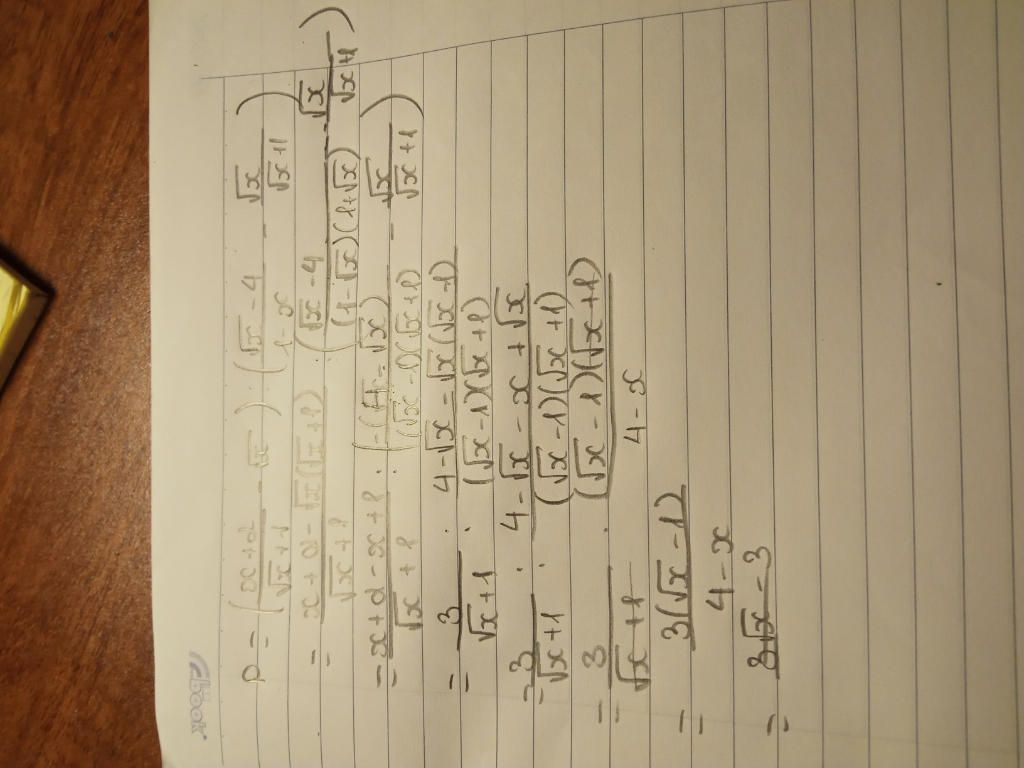 P = ( (x+2)/(√x+1) - √x ) : ( (√x-4)/(1-x) - √x/(√x+1) )
= (x+2-√x(√x+1))/(√x+1) : ( (√x-4)/((1-√x)(1+√x)) - √x/(√x+1) )
= (x+2-x+1)/(√x+1) : ( -(4-√x)/((√x-1)(√x+1)) - √x/(√x+1) )
= 3/(√x+1) : (4-√x-√x(√x-1))/((√x-1)(√x+1))
= 3/(√x+1) : (4-√x-x+√x)/((√x-1)(√x+1))
= 3/(√x+1) . ((√x-1)(√x+1))/(4-x)
= 3(√x-1)/(4-x)
= (3√x-3)/